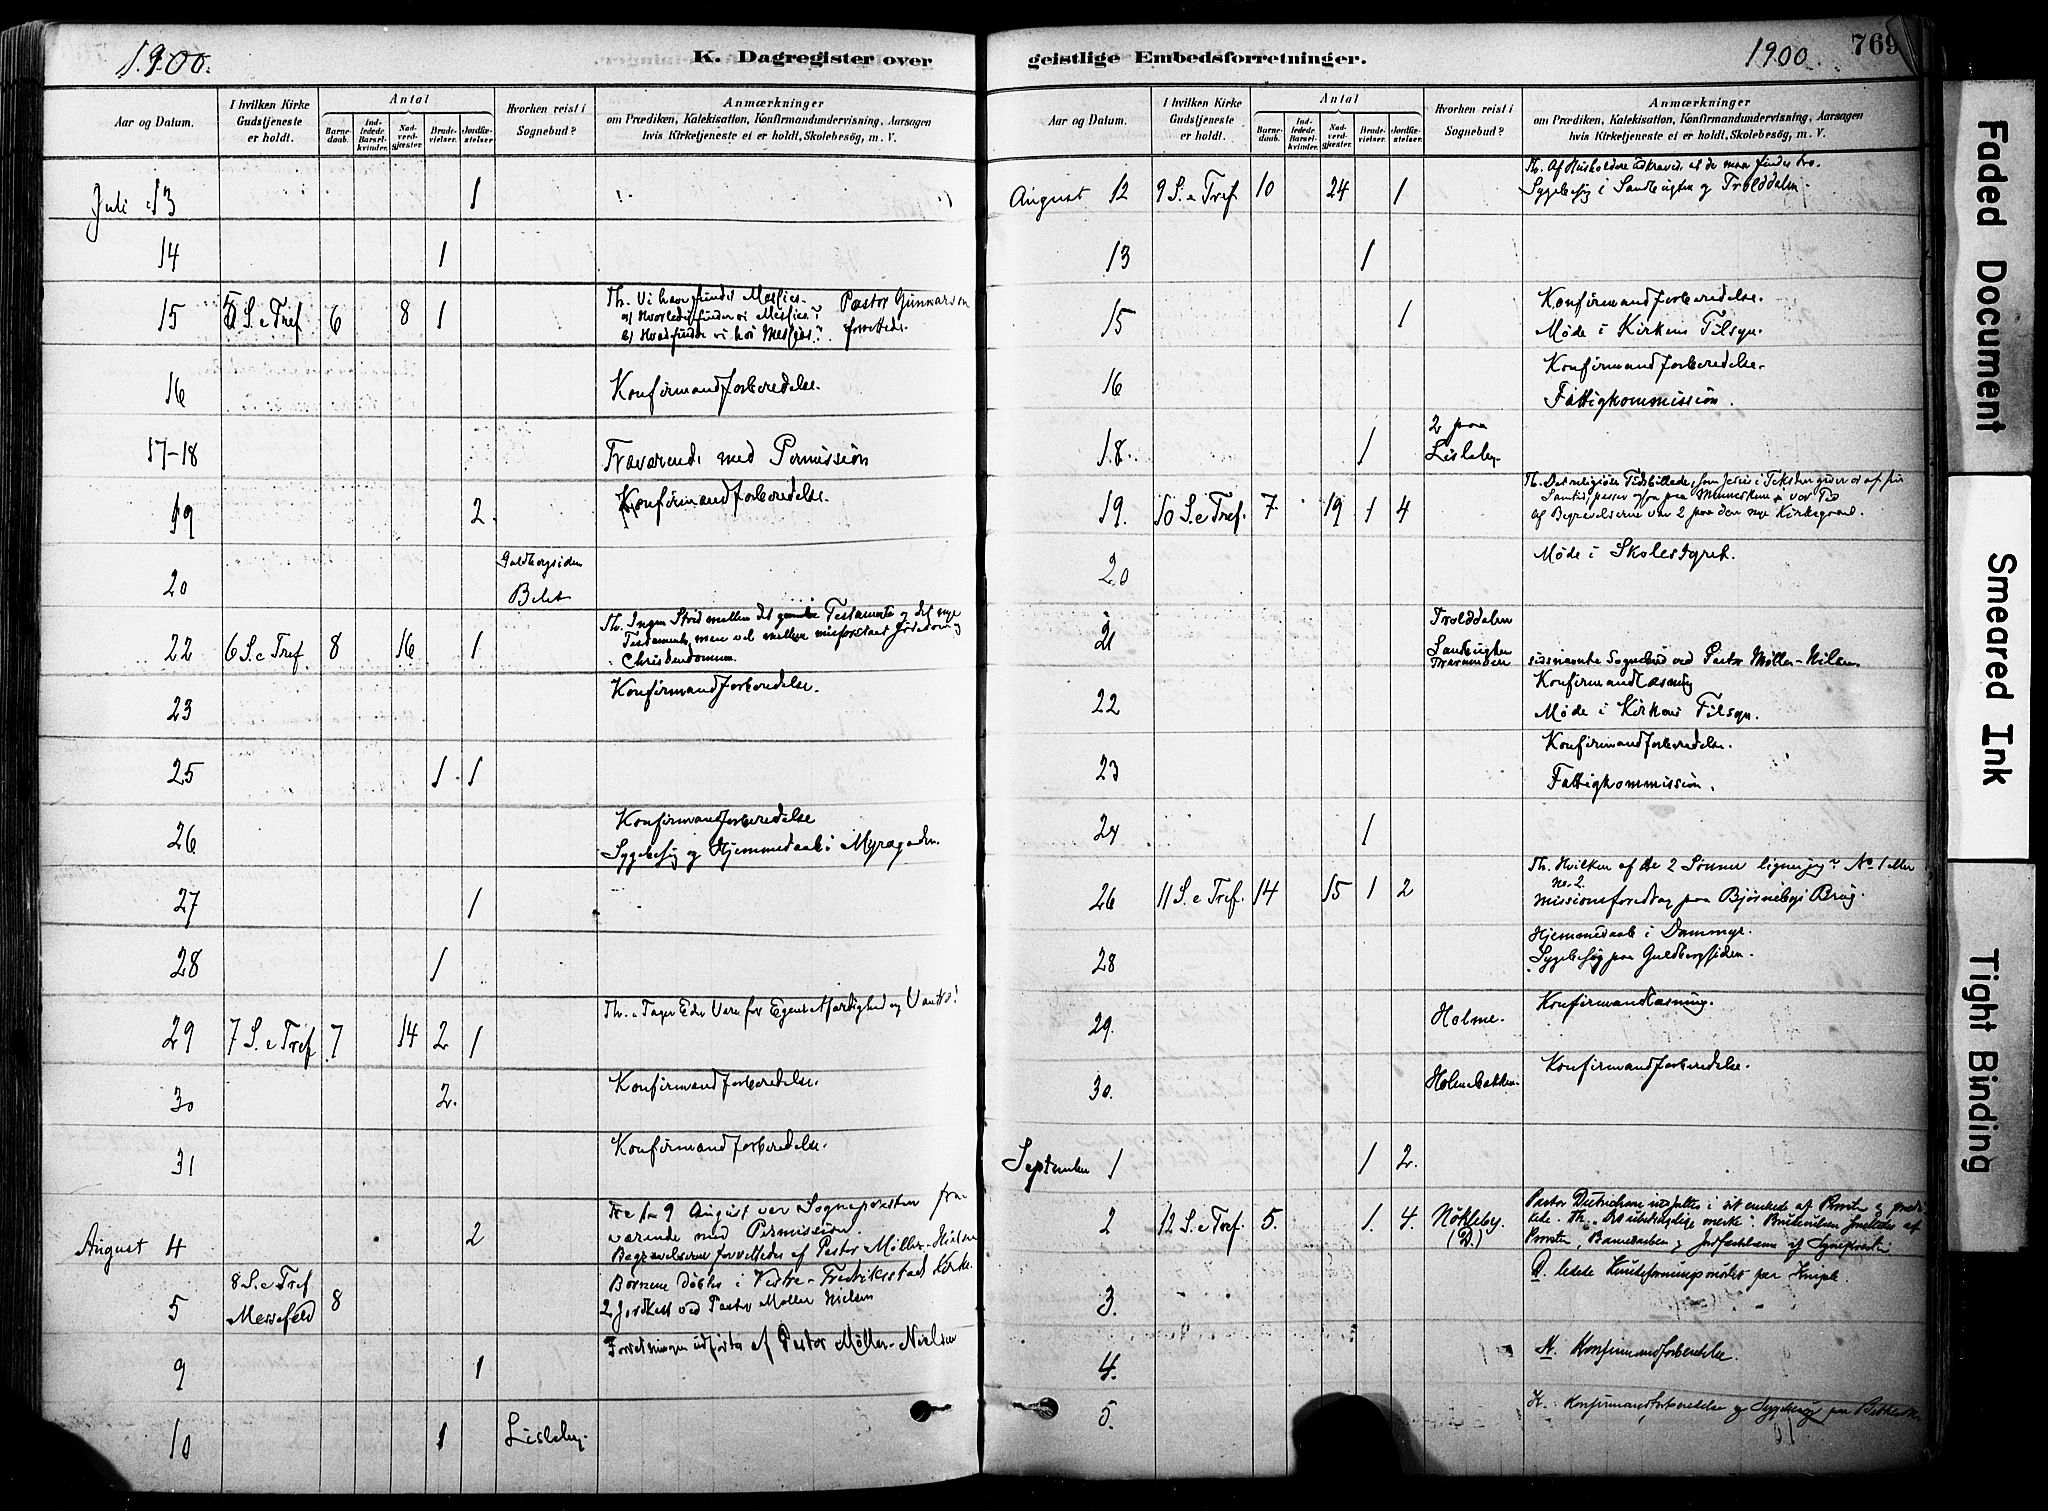 1900.
K. Dagregister over
Aar og Datum.
I hvilken Kirke Gudstjeneste er holdt.
Antal
Barne-daab.
Ind-ledede Barsel-kvinder.
Nad-verd-gjæster.
Brude-vielser.
Jordfæ-stelser
Hvorhen reist i Sognebud?
Anmærkninger
om Prædiken, Katekisation, Konfirmandundervisning, Aarsagen
hvis Kirketjeneste ei er holdt, Skolebesög, m. V.
Juli 13 1
14 1
15 5 S. e Tref 6 8 1 Th. Vi have fundet Messias. Pastor Gunnarson
a) Hvorledes finder vi Messias?
b) Hvad finde vi hos Messias? forrettede.
16 Konfirmandforberedelse.
17-18 Fraværende med Permission
19 2 Konfirmandforberedelse.
20 Guldbergsiden
22 6 S. e Tref 8 16 1 Th. Ingen Strid mellem det gamle Testamente og det nye
Testamente, men vel mellem misforstaaet Jødedom og
Christendommen.
23 Konfirmandforberedelse.
25 1 1
26 Konfirmandforberedelse
Sygebesøg og Hjemmedaab i Myragaden.
27 1
28 1
29 7 S. e Tref 7 14 2 1 Th. Tager Eder Vare for
30 2. Konfirmandforberedelse.
31 Konfirmandforberedelse.
August 4 2 Fra 1-9 August var Sognepræsten fra-
værende med Permission.
Begravelserne forrettedes af Pastor Møller-Nielsen
5 8 S. e Tref 8 Børnene døbtes i Vestre-Fredriksstad Kirke.
2 Jordfæst ved Pastor Møller Nielsen
9 1 Forretningen udførtes af Pastor Møller-Nielsen
10 1 Lisleby.
geistlige Embedsforretninger.
1900
769
Aar og Datum.
I hvilken Kirke Gudstjeneste er holdt.
Antal
Barne-daab.
Ind-ledede Barsel-kvinder.
Nad-verd-gjæster.
Brude-vielser.
Jordfæ-stelser
Hvorhen reist i Sognebud?
Anmærkninger
om Prædiken, Katekisation, Konfirmandundervisning, Aarsagen
hvis Kirketjeneste ei er holdt, Skolebesög, m. V.
August 12 9 S. e Tref 10 24 1 Th. Af Husholdere udkræves at de maa findes tro.
Sygebesøg i Sandbugten og Trolddalen.
13 1
15 1 Konfirmandforberedelse.
Møde i Kirkens Tilsyn.
16 Konfirmandforberedelse.
Fattigkommission.
18. 1 2 paa Lisleby.
19. 10 S. e Tref. 7 19 1 4 Th. Det religiøse Tidsbillede, som Jesus i Teksten giver os af sin
Samtid, passer ogsaa paa Menneskene i vor Tid
Af Begravelserne var 2 paa den nye Kirkegaard.
20 Møde i Skolestyret.
21 Trolddalen
Sandbugten
sidstnævnte Sognebud ved Pastor Møller-Nilsen
22 Konfirmandlæsning
Møde i Kirkens Tilsyn.
23 Konfirmandforberedelse.
Fattigkommission.
24 1
26 11 S. e Tref. 14 15 1 2 Th. Hvilken af de 2 Sønner ligner jeg? No 1 eller
no. 2.
Missionsforedrag paa Bjørneby Brug.
28 Hjemmedaab i Dammyr.
Sygebesøg paa Guldbergsiden.
29. Holme. Konfirmandlæsning.
30. Holmebakken. Konfirmandforberedelse.
September 1 1 2.
2 12 S. e Tref. 5. 1. 4. Nøkleby. (D.) Pastor
D. ledede
3.
4. K. Konfirmandforberedelse.
5. K. Konfirmandforberedelse og Sygebesøg paa
Faded Document
Smeared Ink
Tight Binding